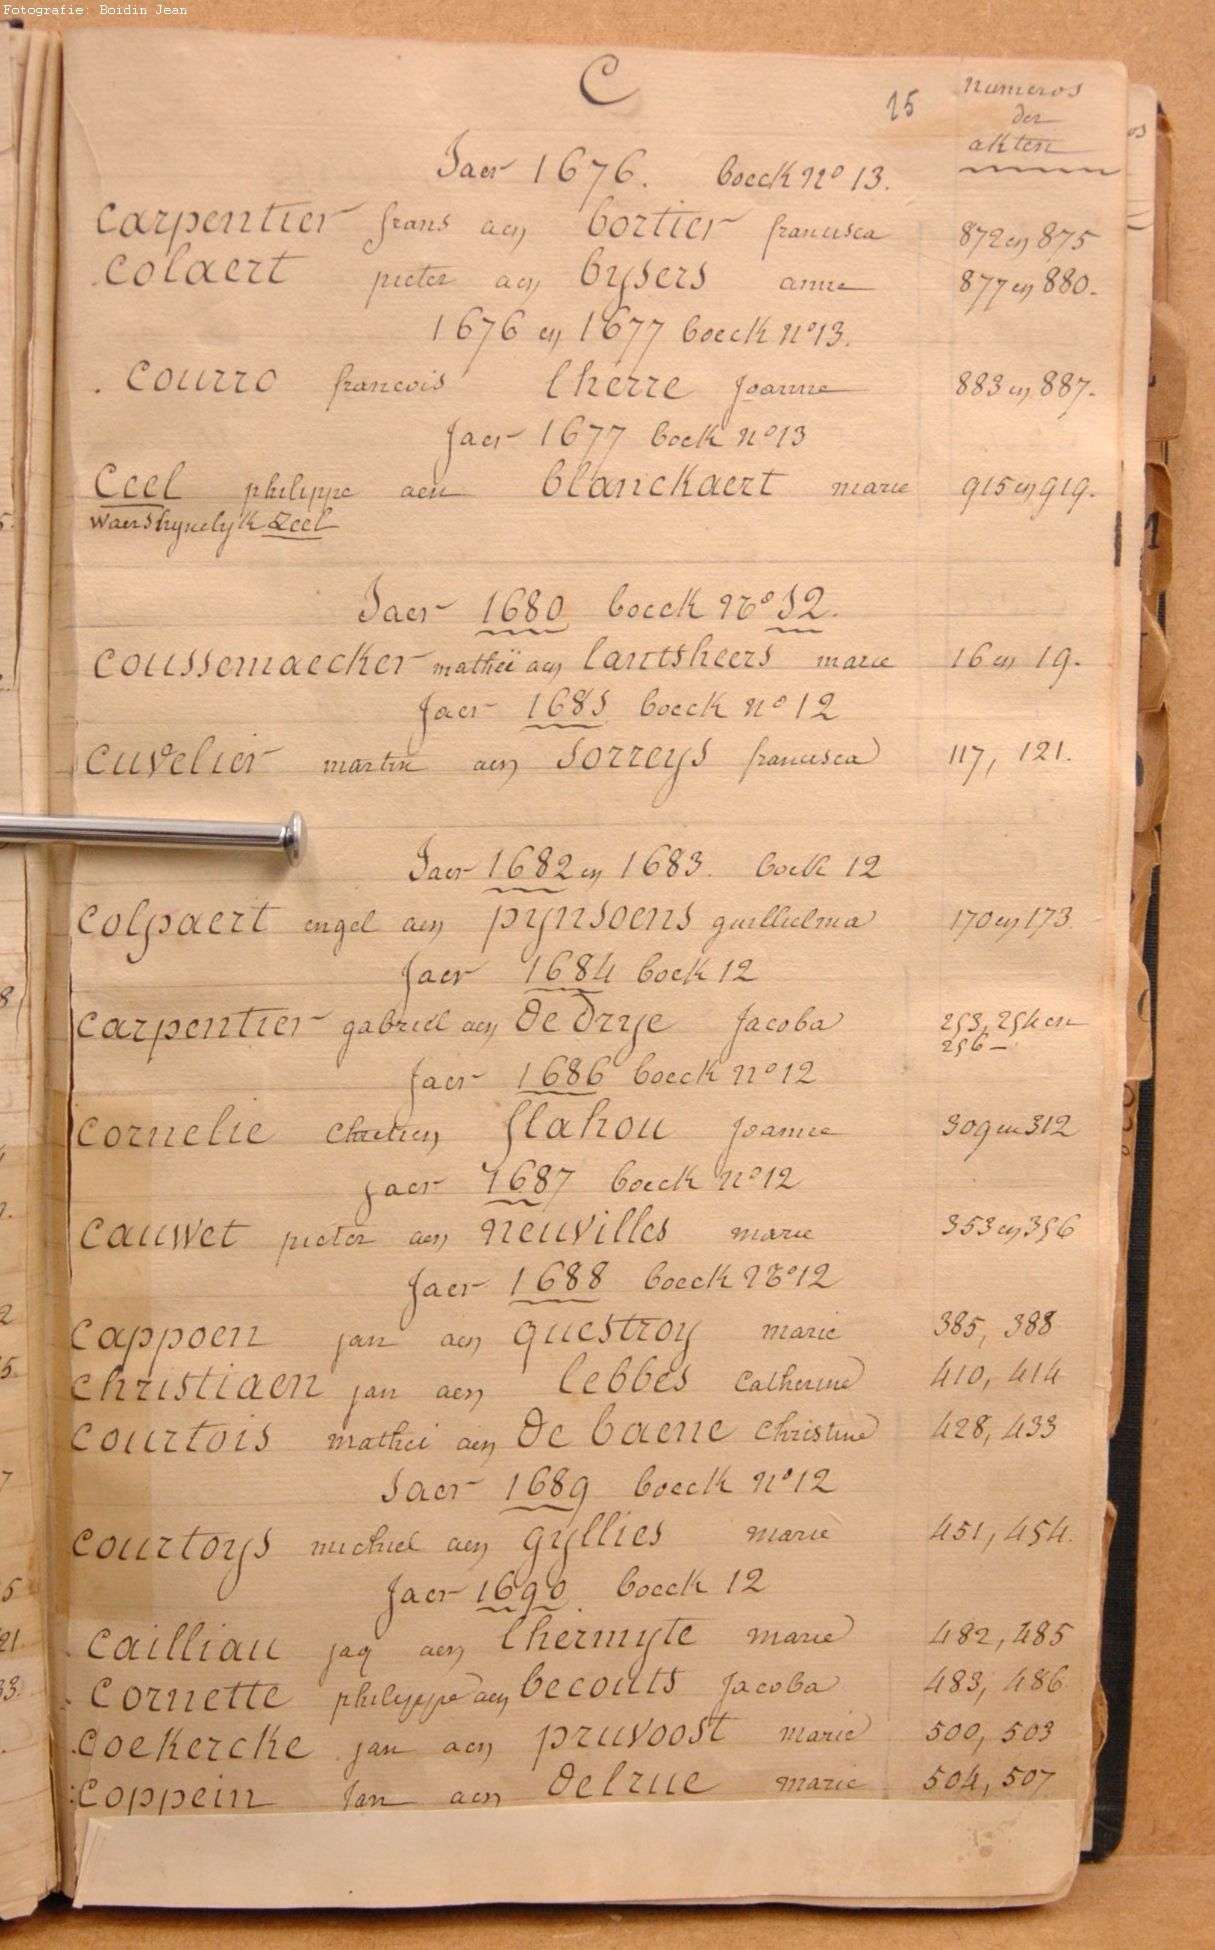 Fotografie: Boidin Jean
C
15
numeros
der
akten
Jaer 1676. boeck Nº 13.
Carpentier frans aen bortier francisca 872 en 875
Colaert pieter aen bysers anne 877 en 880.
1676 en 1677 boeck nº13.
Courro francois lherre Joanne 883 en 887.
Jaer 1677 boek nº13
Ceel philippe aen blanckaert marie 915 en 919.
waershynelyk Zeel
Jaer 1680 boeck Nº 12.
Coussemaecker matheï aen lantsheers marie 16 en 19.
Jaer 1681 boeck nº 12
Cuvelier martin aen Sorreys francisca 117, 121.
Jaer 1682 en 1683. boek 12
Colpaert engel aen pynsoens guillielma 170 en 173
Jaer 1684 boek 12
Carpentier gabriel aen de drye Jacoba 253, 254 en
256 —
Jaer 1686 boeck nº12
Cornelie Chretien flahou Joanne 309 en 312
Jaer 1687 boeck nº12
Cauwet pieter aen neuvilles marie 353 en 356
Jaer 1688 boeck Nº12
Cappoen jan aen questroy marie 385, 388
Christiaen jan aen lebbes Catherine 410, 414
Courtois mathei aen De baene Christine 428, 433
Jaer 1689 boeck nº12
Courtoys michiel aen gyllies marie 451, 454.
Jaer 1690 boeck 12
Cailliau jaq aen lhermyte marie 482, 485
Cornette philippe aen becouts Jacoba 483, 486
Coekercke jan aen pruvoost marie 500, 503
Coppein Jan aen Delrue marie 504, 507